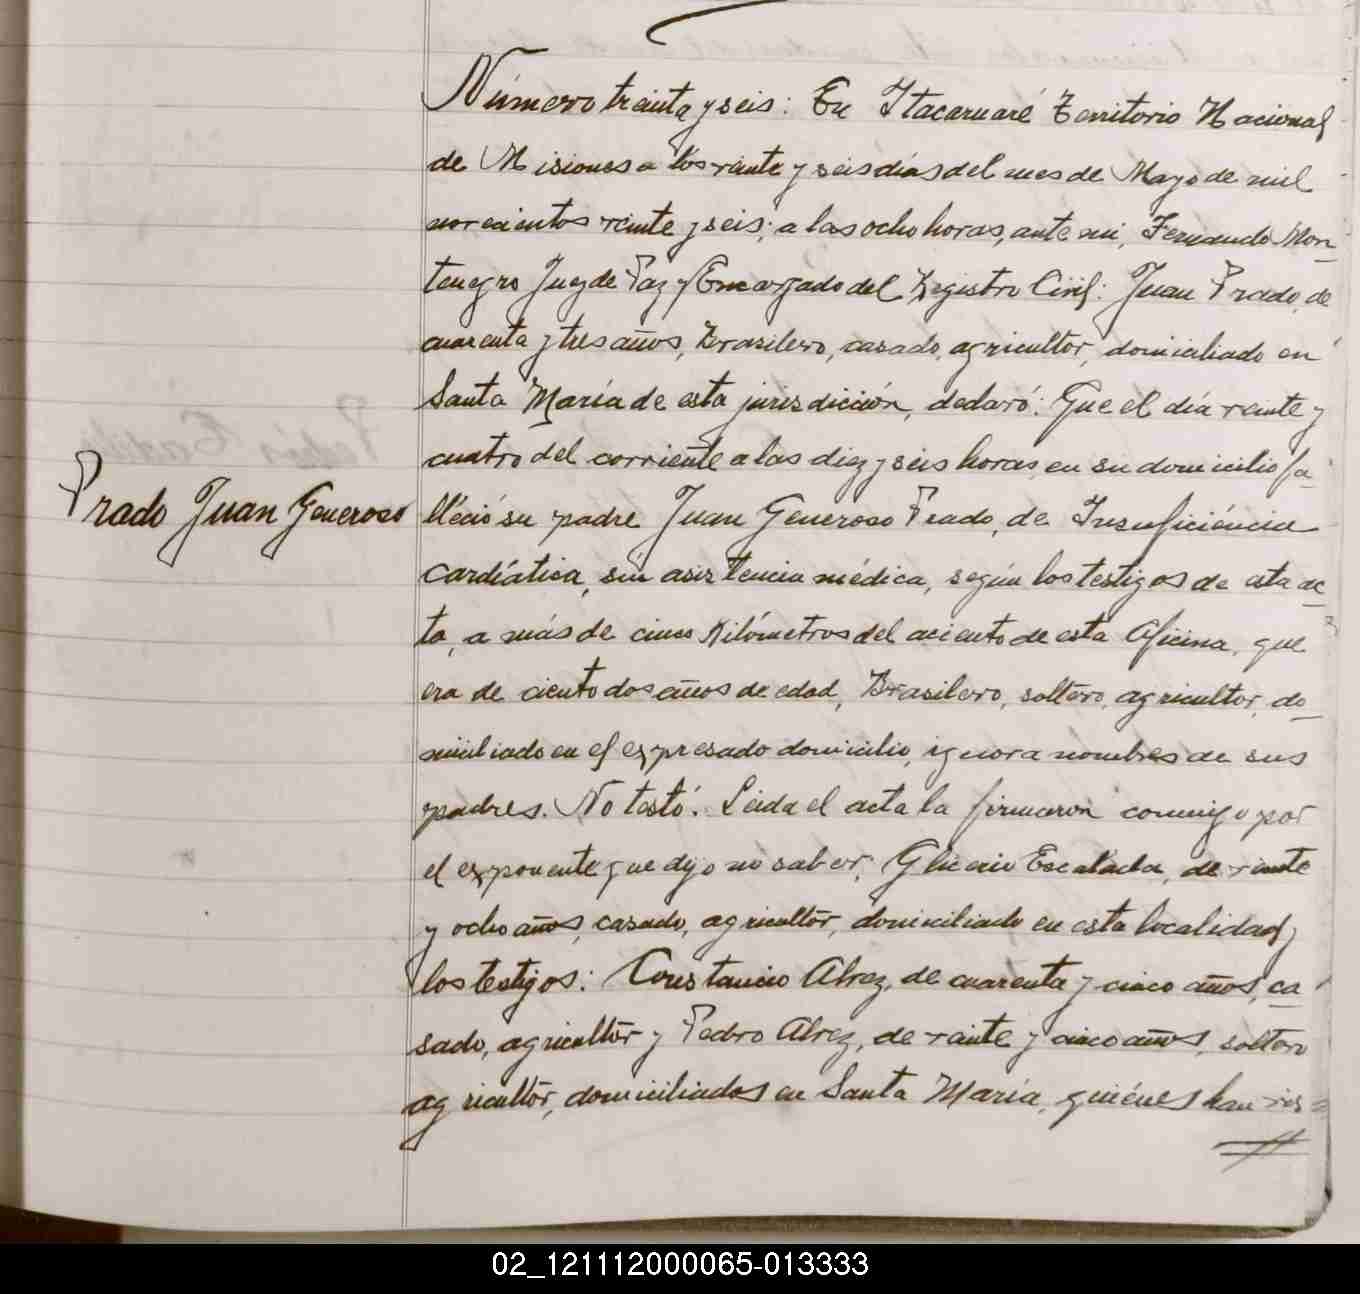 Número treinta y seis: En Itacaruaré Territorio Nacional
de Misiones a los veinte y seis días del mes de Mayo de mil
novecientos veinte y seis; a las ocho horas, ante mi, Fernando Mon-
tenegro Juez de Paz y Encargado del Registro Civil: Juan Prado, de
cuarenta y tres años, Brasilero, casado, agricultor, domiciliado en
Santa María de esta jurisdicción, declaró: Que el día veinte y
cuatro del corriente a las diez y seis horas, en su domicilio fa-
Prado Juan Generoso
lleció su padre Juan Generoso Prado, de Insuficiéncia
Cardíatica, sin asistencia médica, según los testigos de esta ac-
ta, a más de cinco Kilómetros del aciento de esta Oficina, que
era de ciento dos años de edad, Brasilero, soltero, agricultor, do-
miciliado en el expresado domicilio, ignora nombres de sus
padres. No testó. Leida el acta la firmaron conmigo por
el exponente que dijo no saber, Glicerio Escalada, de veinte
y ocho años, casado, agricultor, domiciliado en esta localidad y
los testigos: Constancio Alvez, de cuarenta y cinco años, ca-
sado, agricultor y Pedro Alvez, de veinte y cinco años, soltero
agricultor, domiciliados en Santa María, quiénes han vis=
02_121112000065-013333